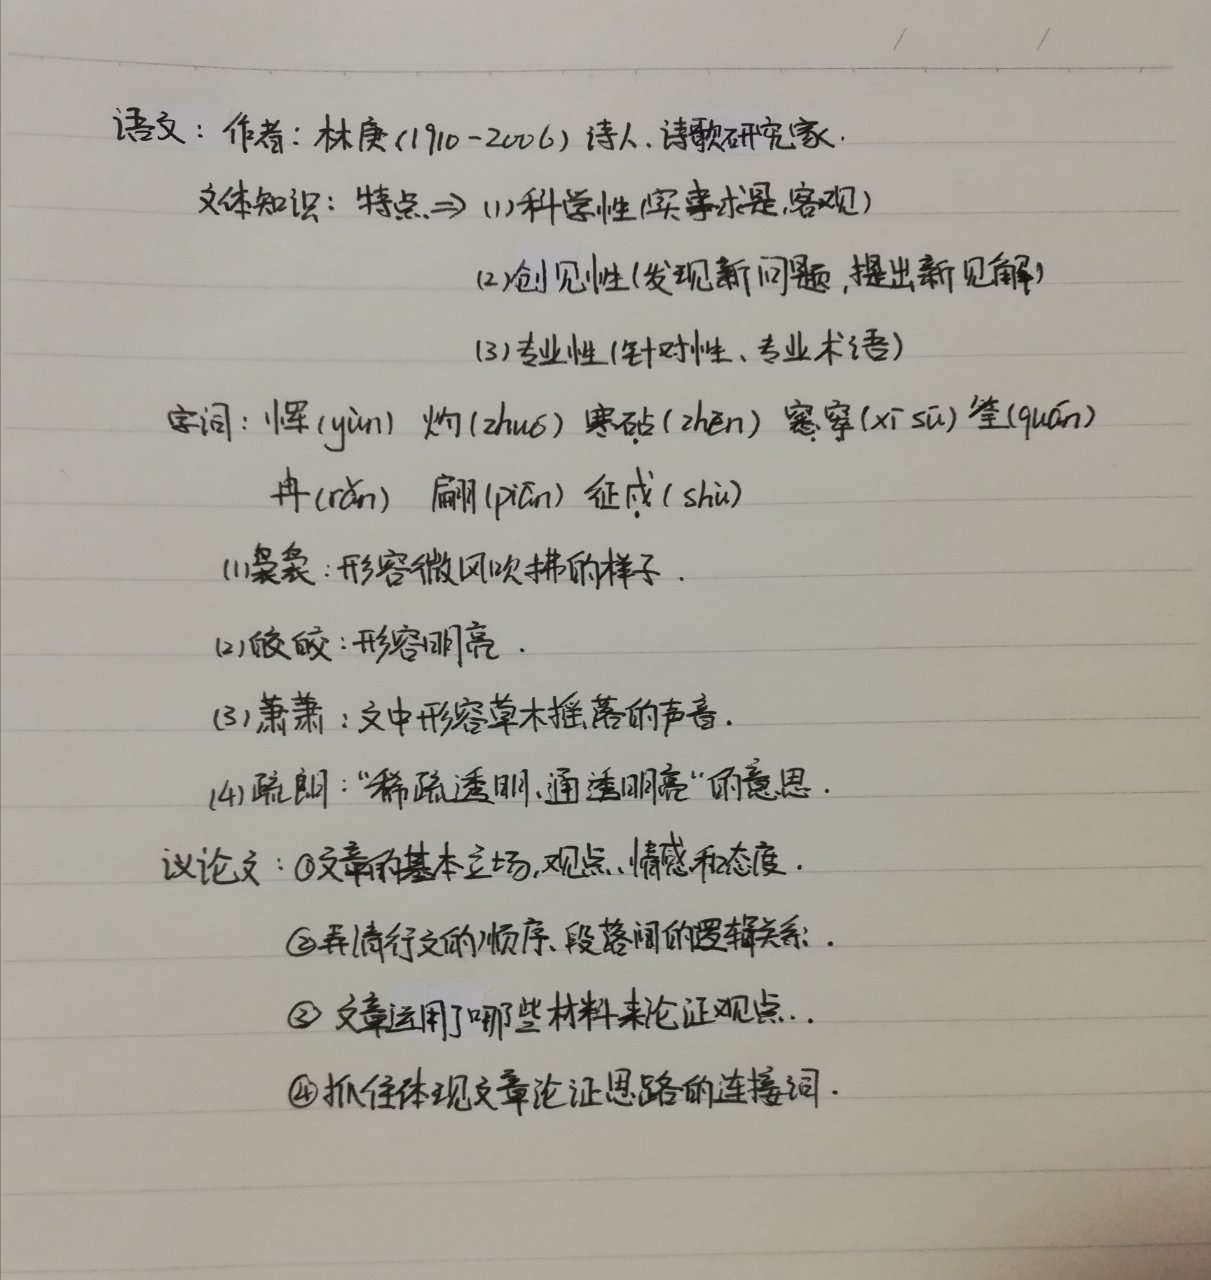 语文：作者：林庚(1910-2006)诗人、诗歌研究家.
文体知识：特点⇒(1)科学性(实事求是,客观)
(2)创见性(发现新问题,提出新见解)
(3)专业性(针对性、专业术语)
字词：恽(yùn) 灼(zhuó) 寒砧(zhēn) 窸窣(xī sū) 筌(quán)
冉(rǎn) 翩(piān) 征戍(shù)
(1)袅袅：形容微风吹拂的样子.
(2)皎皎：形容明亮.
(3)萧萧：文中形容草木摇落的声音.
(4)疏朗："稀疏透明、通透明亮"的意思.
议论文：①文章的基本立场,观点、情感和态度.
②弄清行文的顺序、段落间的逻辑关系.
③文章运用了哪些材料来论证观点..
④抓住体现文章论证思路的连接词.